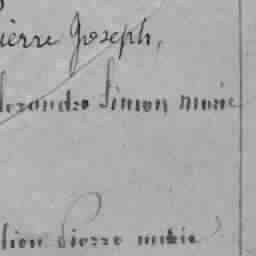 ierre Joseph,
lexandre Simon marie
lien Pierre marie